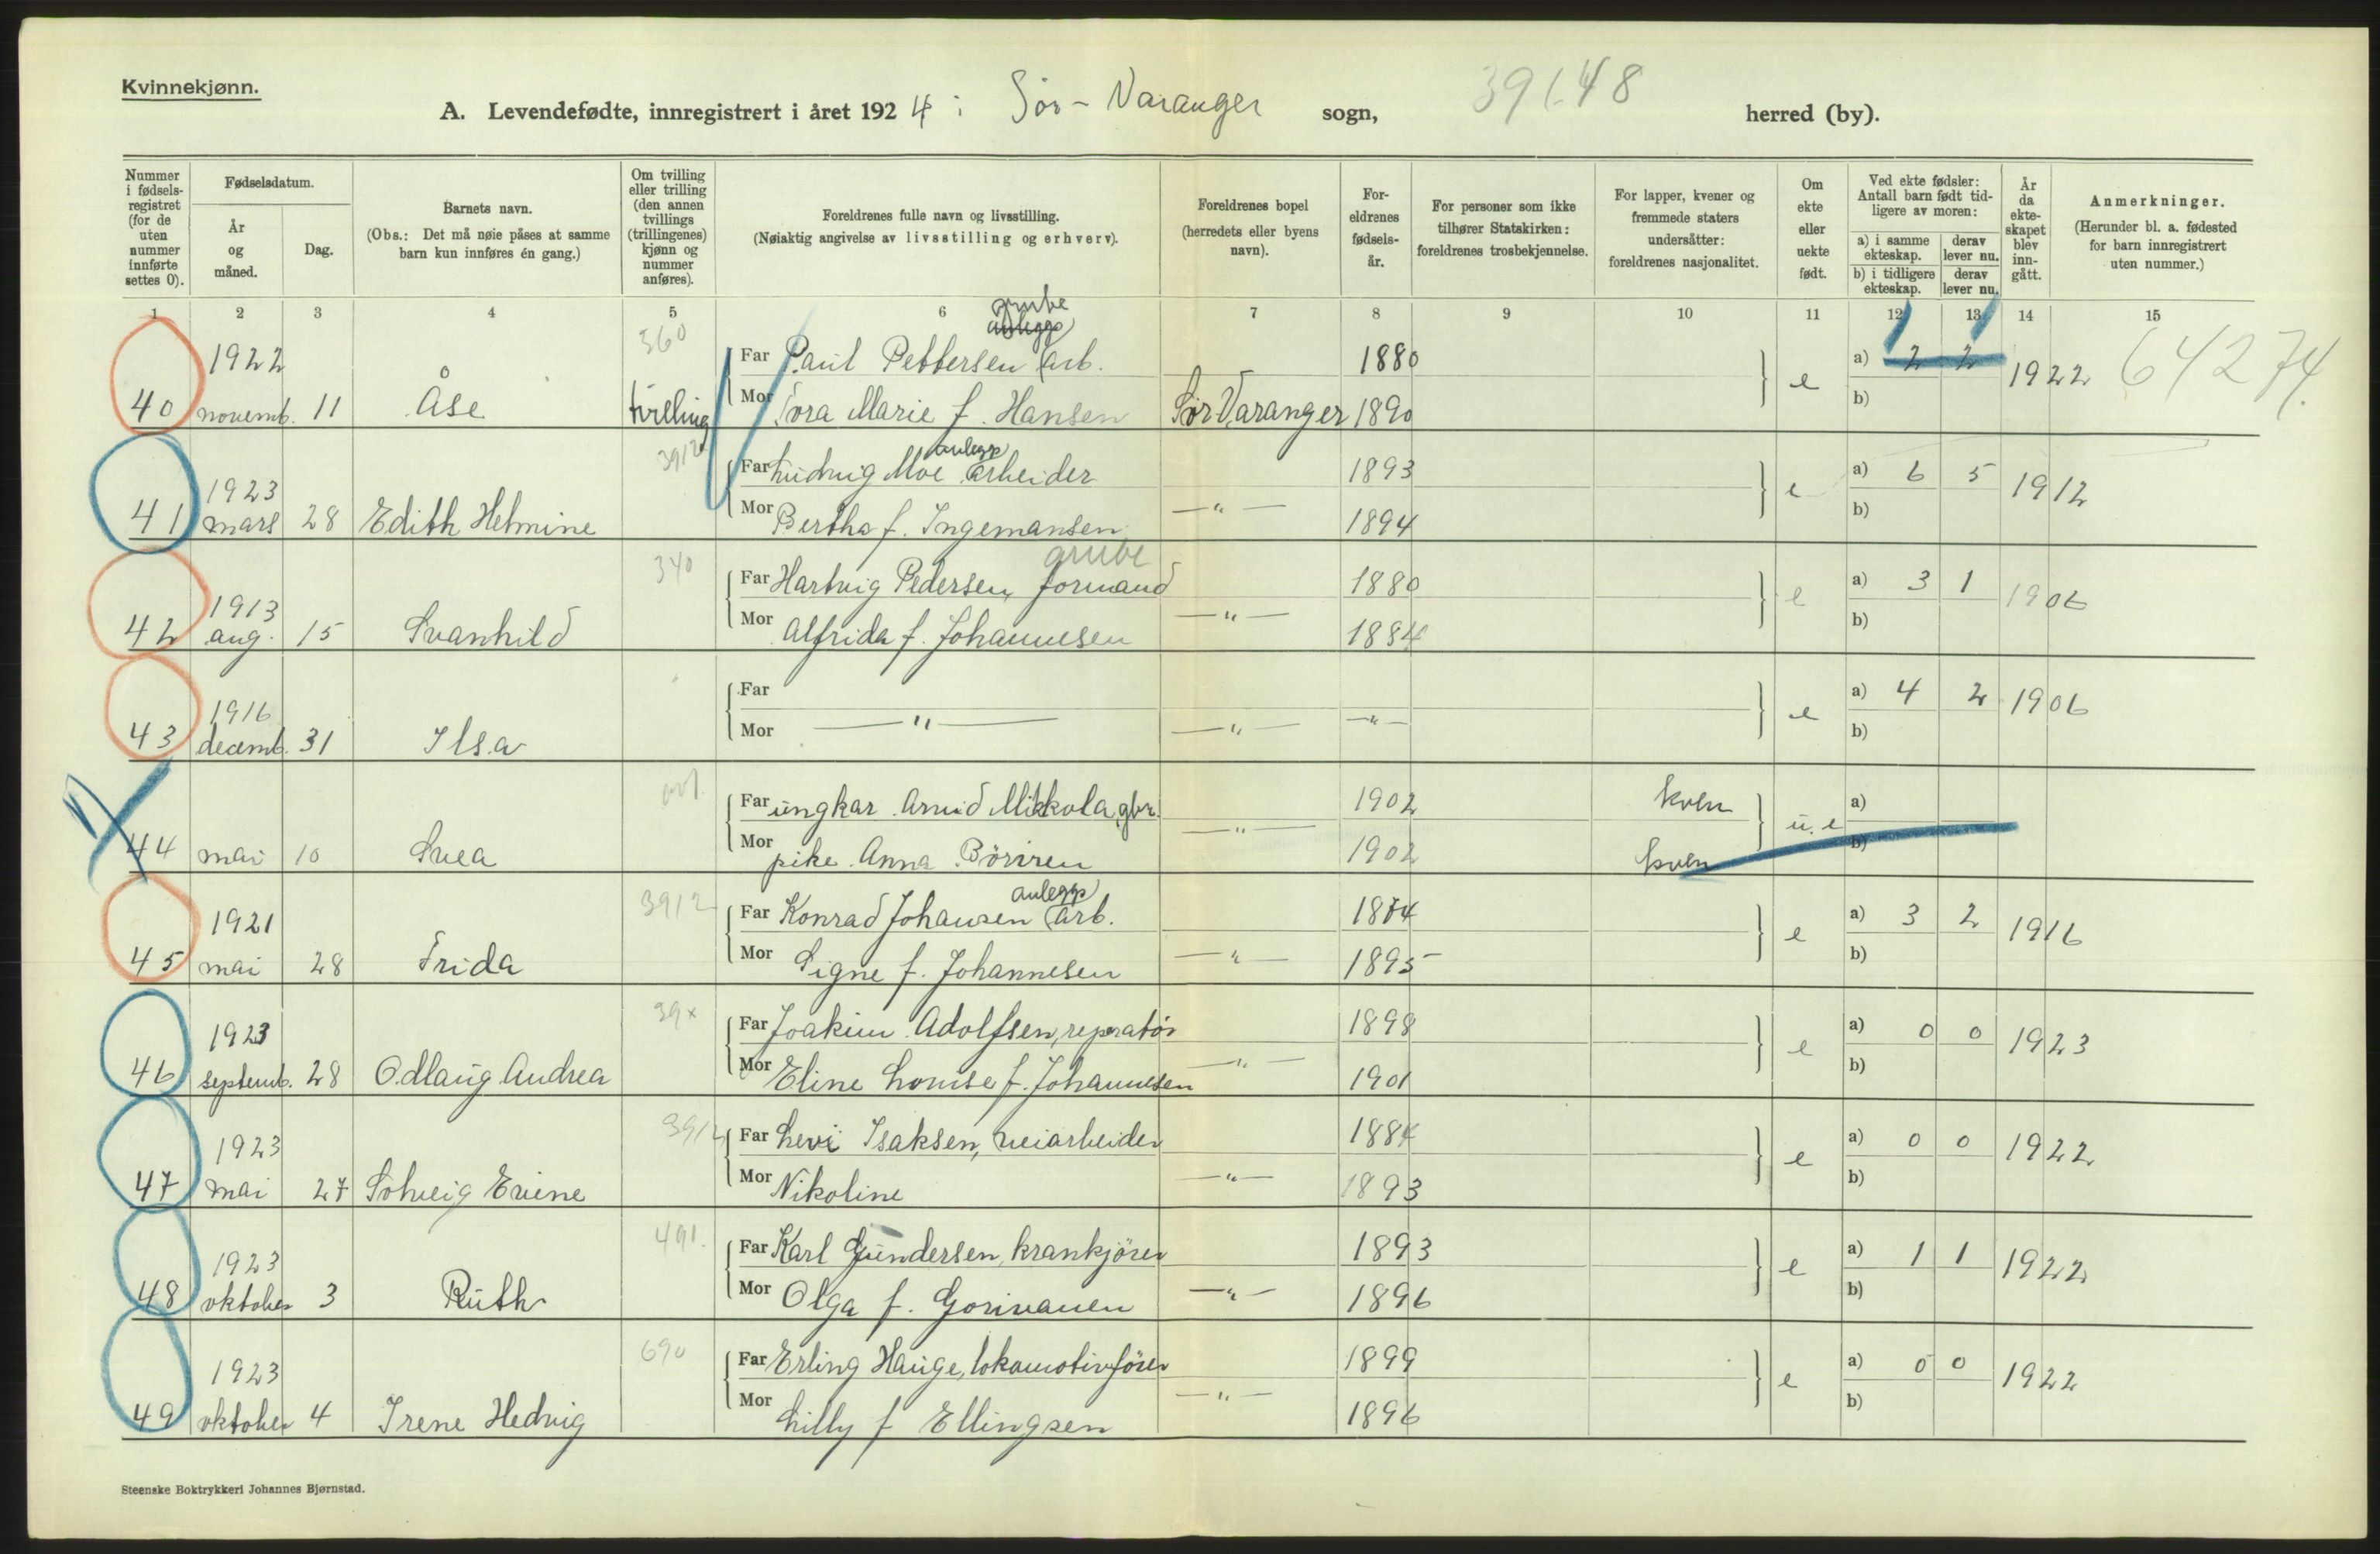 Kvinnekjønn.
A. Levendefødte, innregistrert i året 1924 i Sør-Varanger sogn, 39148 herred (by).
Nummer i fødsels-registret (for de uten nummer innførte settes 0).
Fødselsdatum.
År og måned.
Dag.
Barnets navn.
(Obs.: Det må nøie påses at samme barn kun innføres én gang.)
Om tvilling eller trilling (den annen tvillings (trillingenes) kjønn og nummer anføres).
Foreldrenes fulle navn og livsstilling.
(Nøiaktig angivelse av livsstilling og erhverv).
Foreldrenes bopel (herredets eller byens navn).
For-eldrenes fødsels-år.
For personer som ikke tilhører Statskirken: foreldrenes trosbekjennelse.
For lapper, kvener og fremmede staters undersåtter: foreldrenes nasjonalitet.
Om ekte eller uekte født.
Ved ekte fødsler: Antall barn født tid-ligere av moren:
a) i samme ekteskap. derav lever nu.
b) i tidligere ekteskap. derav lever nu.
År da ekte-skapet blev inn-gått.
Anmerkninger.
(Herunder bl. a. fødested for barn innregistrert uten nummer.)
1 2 3 4 5 6 7 8 9 10 11 12 13 14 15
grube
anlegg
1922 360 Far Paul Pettersen arb. 1880 a) 2 2 1922 64274
40 novemb. 11 Åse tvilling Mor Tora Marie f. Hansen Sør Varanger 1890 e b)
anlegg
1923 3912 Far Ludvig Moe arbeider 1893 a) 6 5 1912
41 mars 28 Edith Helmine Mor Bertha f. Ingemansen —"— 1894 e b)
grube
1913 340 Far Hartvig Pedersen, formand 1880 a) 3 1 1906
42 aug. 15 Svanhild Mor Alfrida f. Johannesen —"— 1884 e b)
1916 Far a) 4 2 1906
43 decemb. 31 Ilsa Mor —"— —"— —"— e b)
Far ungkar Arvid Mikkola, gbr. 1902 kven a)
44 mai 10 Svea Mor pike Anna —"— 1902 kven u.e b)
anlegg
1921 3912 Far Konrad Johansen arb. 1874 a) 3 2 1916
45 mai 28 Frida Mor Signe f. Johannesen —"— 1895 e b)
1923 39x Far Joakim Adolfsen, reparatør 1898 a) 0 0 1923
46 septemb. 28 Odlaug Andrea Mor Eline Louise f. Johannesen —"— 1901 e b)
1923 3912 Far Levi Isaksen, veiarbeider 1884 a) 0 0 1922
47 mai 27 Solveig Evine Mor Nikoline —"— 1893 e b)
1923 491. Far Karl Gundersen, krankjører 1893 a) 1 1 1922
48 oktober 3 Ruth Mor Olga f. Gorivanen —"— 1896 e b)
1923 690 Far Erling Hauge, lokomotivfører 1899 a) 0 0 1922
49 oktober 4 Irene Hedvig Mor Lilly f Ellingsen —"— 1896 e b)
Steenske Boktrykkeri Johannes Bjørnstad.